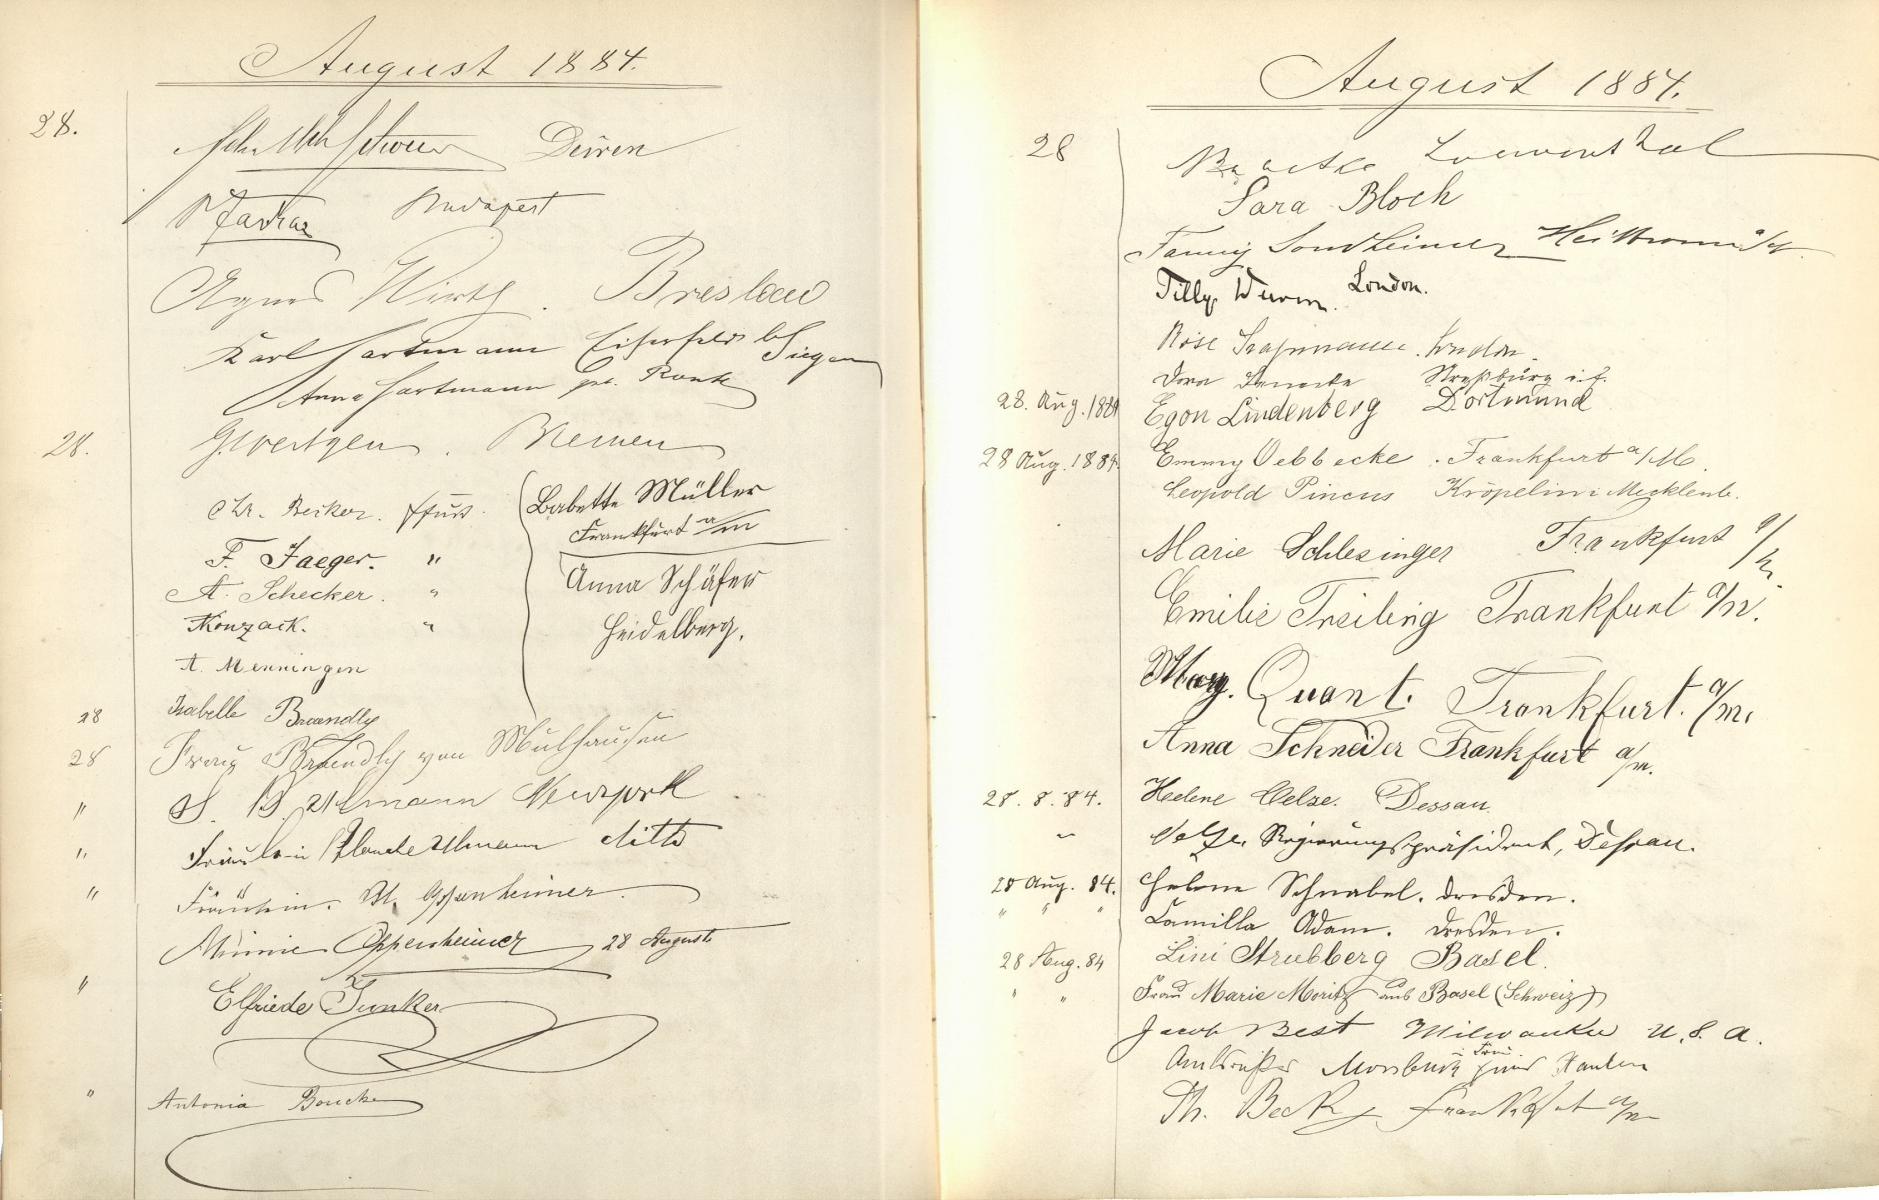 August 1884.
28.
Düren
Budapest
Agnes Wirth. Breslau
Karl Hartmann Eiserfeld b/Siegen
Anna Hartmann
28.
Bremen
Chr. Becker. Ffurt.
F. Jaeger. "
A. Schecker. "
Konzack. "
A. Menningen
Babette Müller
Frankfurt a/m
Anna Schäfer
Heidelberg.
28 Isabelle Braendly
28 Frau Braendly von Mülhausen
" S. B. Ullmann Newyork
" Fräulein Blanche Ullmann ditto
" Fräulein. M. Oppenheimer
Minnie Oppenheimer 28 August
" Elfriede Junker
" Antonia Boucke
August 1884.
28
Babette Loewenthal
Sara Bloch
Fanny Sondheimer Heilbronn
Tilly Wurm. London.
Rose London.
Dora Straßburg i.E.
28. Aug. 1884 Egon Lindenberg Dortmund
28 Aug. 1884. Emmy Oebbecke. Frankfurt a/M.
Leopold Pincus Kröpelin i Mecklenb.
Marie Schlesinger Frankfurt a/M.
Emilie Treiling Frankfurt a/M.
Marg. Quant. Frankfurt. a/m.
Anna Schneider Frankfurt a/m.
28. 8. 84. Helene Oelze. Dessau.
" Oelze, Regierungspräsident, Dessau.
28 Aug. 84. Helene Schnabel. Dresden.
" " " Camilla Adam. Dresden.
28 Aug. 84 Lini Strubberg Basel.
" " Frau Marie Moritz aus Basel (Schweiz)
Jacob Best Milwaukee U. S. A.
Amtsrichter Xanten
Th. Beck, Frankfurt a/m